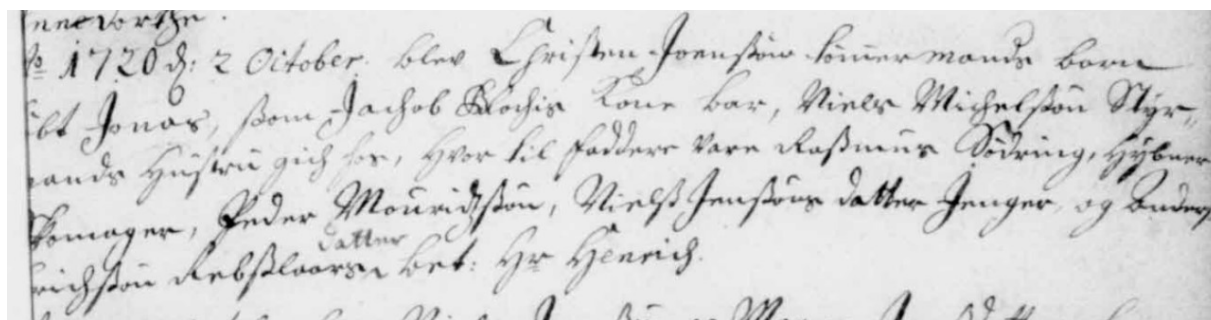 1720 d: 2 October. blev Christen Joensøn tømmermands barn
døbt Jonas, som Jachob Kochis Kone bar, Niels Michelsøn Styr¬
mands Hustru gich hos, Hvor til faddere vare Rasmus Södring, Hybner
Skomager, Peder Mouridsøn, Nielss Jenssøns datter Jenger, og Anders
Erichsøn Rebslaars datter bet: Hr Henrich.